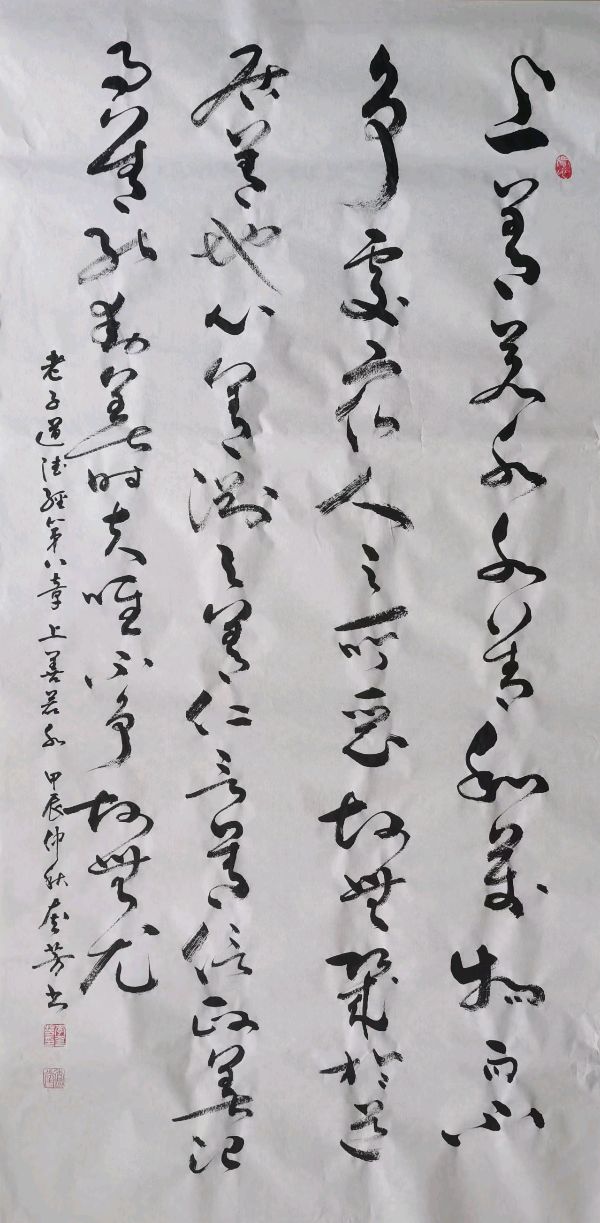 上善若水水善利萬物而不
争處眾人之所惡故無幾於道
居善地心善渊與善仁言善信政善治
事善能動善時夫唯不争故無尤
老子道德經第八章上善若水 甲辰仲秋 芳书